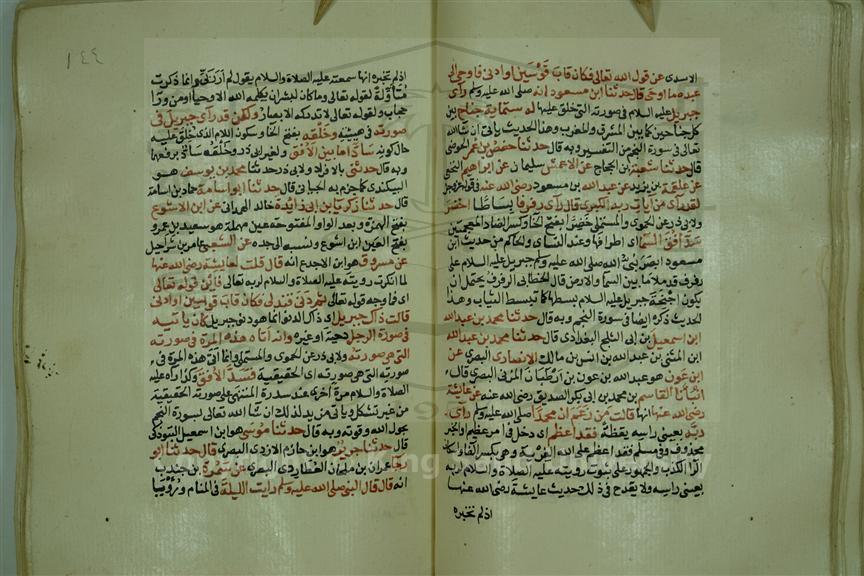 الاسدى عن قول الله تعالى فكان قاب قوسين او ادنى فاوحى الى
عبده ما اوحى قال حدثنا ابن مسعود انه صلى الله عليه وسلم رأى
جبريل عليه السلام في صورته التي خلق عليها له ستماية جناح بين
كل جناحين كما بين المشرق والمغرب وهذا الحديث ياتى ان شا الله
تعالى في سورة النجم من التفسير وبه قال حدثنا حفص بن عمر الحوضى
قال حدثنا شعبة بن الحجاج عن الاعمش سليمان عن ابراهيم النخعى
عن علقمة بن يزيد عن عبد الله بن مسعود رضى الله عنه في قوله عز وجل
لقد رأى من آيات ربه الكبرى قال رأى رفرفا بساطا اخضر
ولابى ذر عن الحموى والمستملى خضرا بفتح الخا وكسر الضاد المعجمتين
سد افق السما اى اطرافها وعند النساى والحاكم من حديث ابن
مسعود ابصر نبى الله صلى الله عليه وسلم جبريل عليه السلام على
رفرف قد ملأ ما بين السما والارض قال الخطابى الرفرف يحتمل ان
يكون اجنحة جبريل عليه السلام بسطها كما تبسط الثياب وهذا
الحديث ذكره ايضا في سورة النجم وبه قال حدثنا محمد بن عبد الله
ابن اسمعيل بن ابى الثلج البغدادى قال حدثنا محمد بن عبد الله
ابن المثنى بن عبد الله بن انس بن مالك الانصارى البصرى عن
ابن عون هو عبد الله بن عون بن ارطبان المزنى البصرى قال
انبأنا القاسم بن محمد بن ابى بكر الصديق رضى الله عنه عن عايشة
رضى الله عنها انها قالت من زعم ان محمدا صلى الله عليه وسلم رأى
ربه بعينى راسه يقظة فقد اعظم اى دخل في امر عظيم والخبر
محذوف وفي مسلم فقد اعظم على الله الفرية وهى بكسر الفا واسكان
الرا الكذب والجمهور على ثبوت رويته عليه الصلاة والسلام لربه
بعينى راسه ولا يقدح في ذلك حديث عايشة رضى الله عنها
اذ لم تخبره
١٤٤
اذ لم تخبره انها سمعته عليه الصلاة والسلام يقول لم ار ربى وانما ذكرت
متأولة لقوله تعالى وما كان لبشر ان يكلمه الله الا وحيا او من ورا
حجاب ولقوله تعالى لا تدركه الابصار ولكن قد رأى جبريل فى
صورته في هييته وخلقه بفتح الخا وسكون اللام الذى خلق عليه
حال كونه سادا ما بين الافق ولغير ابى ذر وخلقه ساد برفعهما
وبه قال حدثنى بالافراد ولابى ذر حدثنا محمد بن يوسف هو
البيكندى كما جزم به الجيانى قال حدثنا ابو اسامة حماد بن اسامة
قال حدثنا زكريا بن ابى زائدة خالد الهمدانى عن ابن الاشوع
بفتح الهمزة وبعد الواو المفتوحة عين مهملة هو سعيد بن عمرو
بفتح العين ابن اشوع ونسبه الى جده عن الشعبى عامر بن شراحيل
عن مسروق هو ابن الاجدع انه قال قلت لعايشة رضى الله عنها
لما انكرت رويته عليه الصلاة والسلام لربه تعالى فاين قوله تعالى
اى فا وجه قوله تعالى ثم دنى فتدلى فكان قاب قوسين او ادنى
قالت ذاك جبريل اى ذاك الدنو انما هو دنو جبريل كان ياتيه
في صورة الرجل دحية او غيره وانه اتاه هذه المرة في صورته
التى هى صورته ولابى ذر عن الحموى والمستملى وانما اتى هذه المرة في
صورته التى هى صورته اى الحقيقية فسد الافق وكذا رآه عليه
الصلاة والسلام مرة اخرى عند سدرة المنتهى على صورته الحقيقية
من غير تشكل وياتى مزيد لذلك ان شا الله تعالى بسورة النجم
بحول الله وقوته وبه قال حدثنا موسى هو ابن اسمعيل التبوذكى
قال حدثنا جرير هو ابن حازم الازدى البصرى قال حدثنا ابو
رجا عمران بن ملحان العطاردى البصرى عن سمرة بن جندب
انه قال قال النبى صلى الله عليه وسلم رايت الليلة في المنام ورؤيا